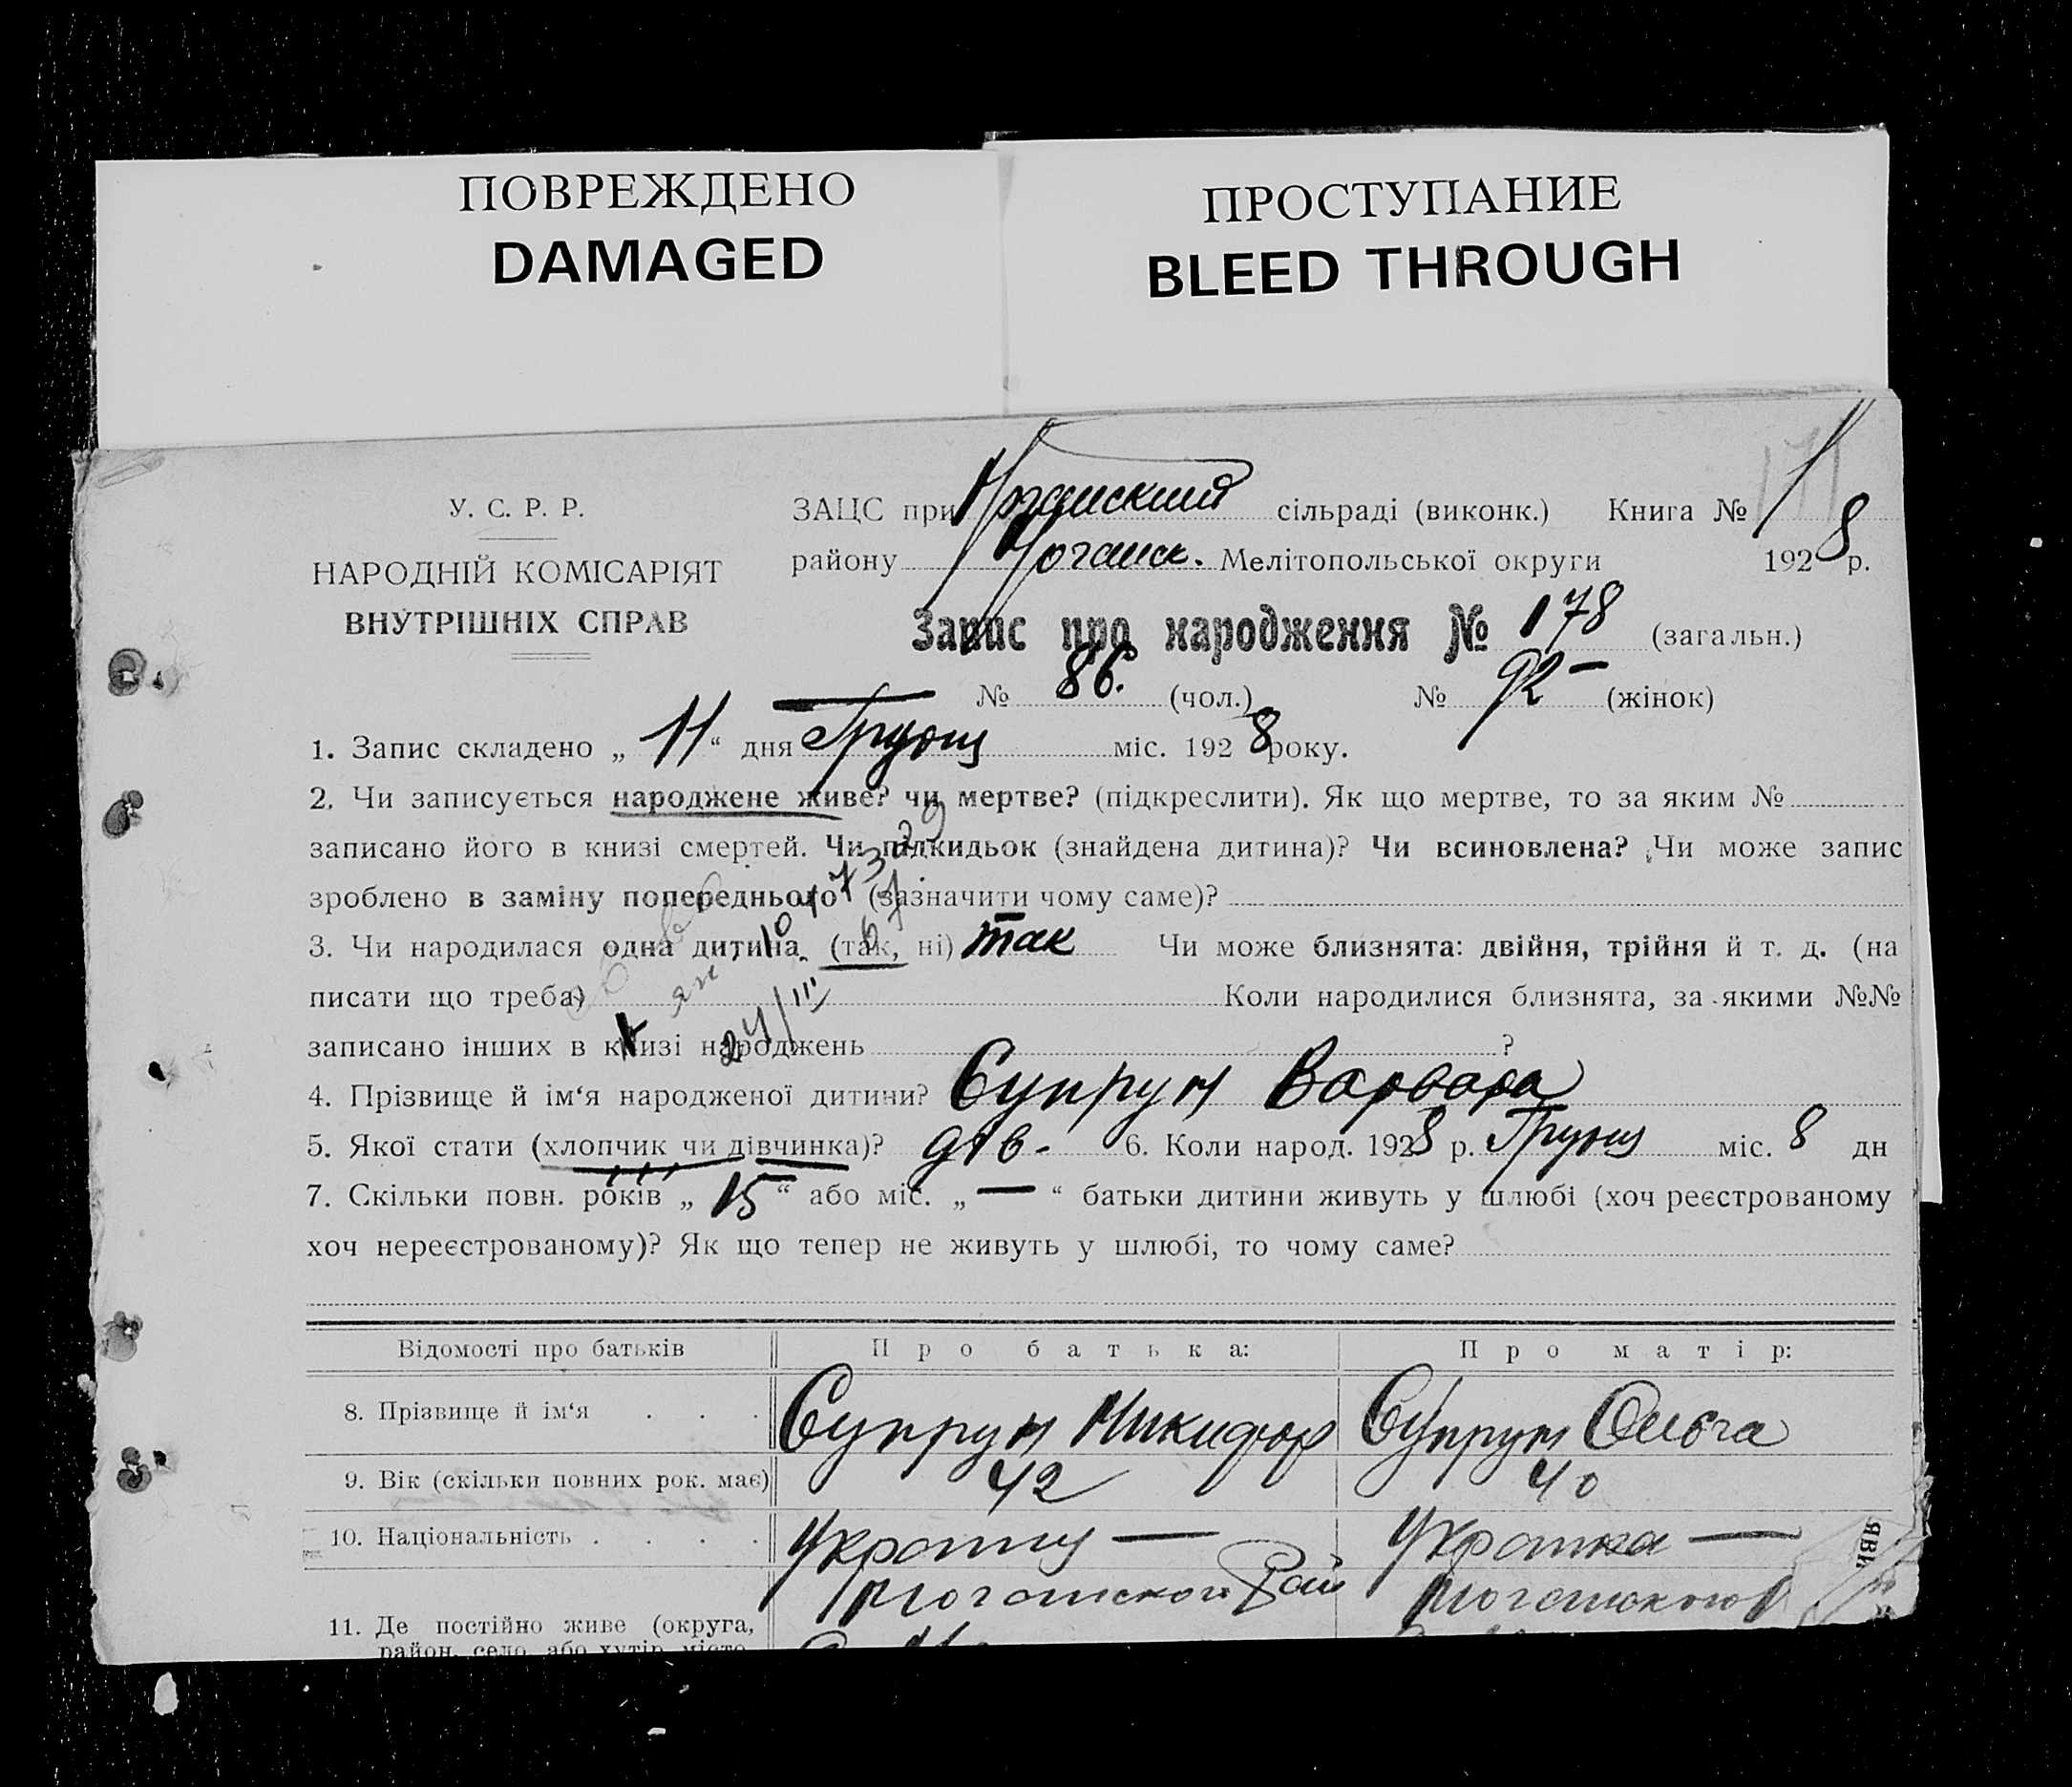 ПОВРЕЖДЕНО
DAMAGED
ПРОСТУПАНИЕ
BLEED THROUGH
У. С. Р. Р.
НАРОДНІЙ КОМІСАРІЯТ
ВНУТРІШНІХ СПРАВ
ЗАЦС при сільраді (виконк.) Книга № 1
району Ногайск. Мелітопольської округи 1928 р.
Запис про народження № 178 (загальн.)
№ 86. (чол.) № 92 – (жінок)
1. Запис складено „ 11 “ дня Грудня міс. 1928 року.
2. Чи записується народжене живе? чи мертве? (підкреслити). Як що мертве, то за яким №
записано його в книзі смертей. Чи підкидьок (знайдена дитина)? Чи всиновлена? Чи може запис
зроблено в заміну попереднього (зазначити чому саме)?
3. Чи народилася одна дитина (так, ні) так Чи може близнята: двійня, трійня й т. д. (на
писати що треба) Коли народилися близнята, за якими №№
24/III
записано інших в книзі народжень ?
4. Прізвище й ім‘я народженої дитини? Супрун Варвара
5. Якої стати (хлопчик чи дівчинка)? дів. 6. Коли народ. 1928 р. Грудня міс. 8 дн
7. Скільки повн. років „ 15 “ або міс. „ — “ батьки дитини живуть у шлюбі (хоч реєстрованому
хоч нереєстрованому)? Як що тепер не живуть у шлюбі, то чому саме?
Відомості про батьків Про батька: Про матір:
8. Прізвище й ім‘я . . . Супрун Никифор Супрун Ольга
9. Вік (скільки повних рок. має) 42 40
10. Національність . . . . Україниц — Українка —
11. Де постійно живе (округа, Ногайской Рай
район, село або хутір, місто